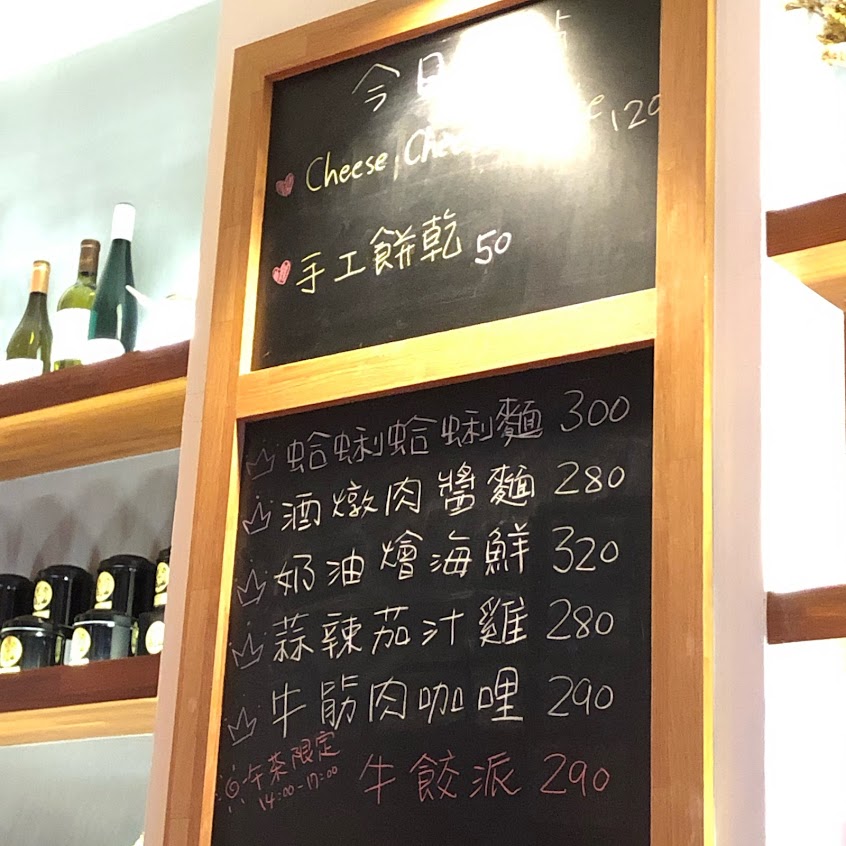 今日
Cheese, 120
手工餅乾 50
蛤蜊蛤蜊麵 300
酒燉肉醬麵 280
奶油燴海鮮 320
蒜辣茄汁雞 280
牛筋肉咖哩 290
午茶限定
14:00-17:00
牛餃派 290